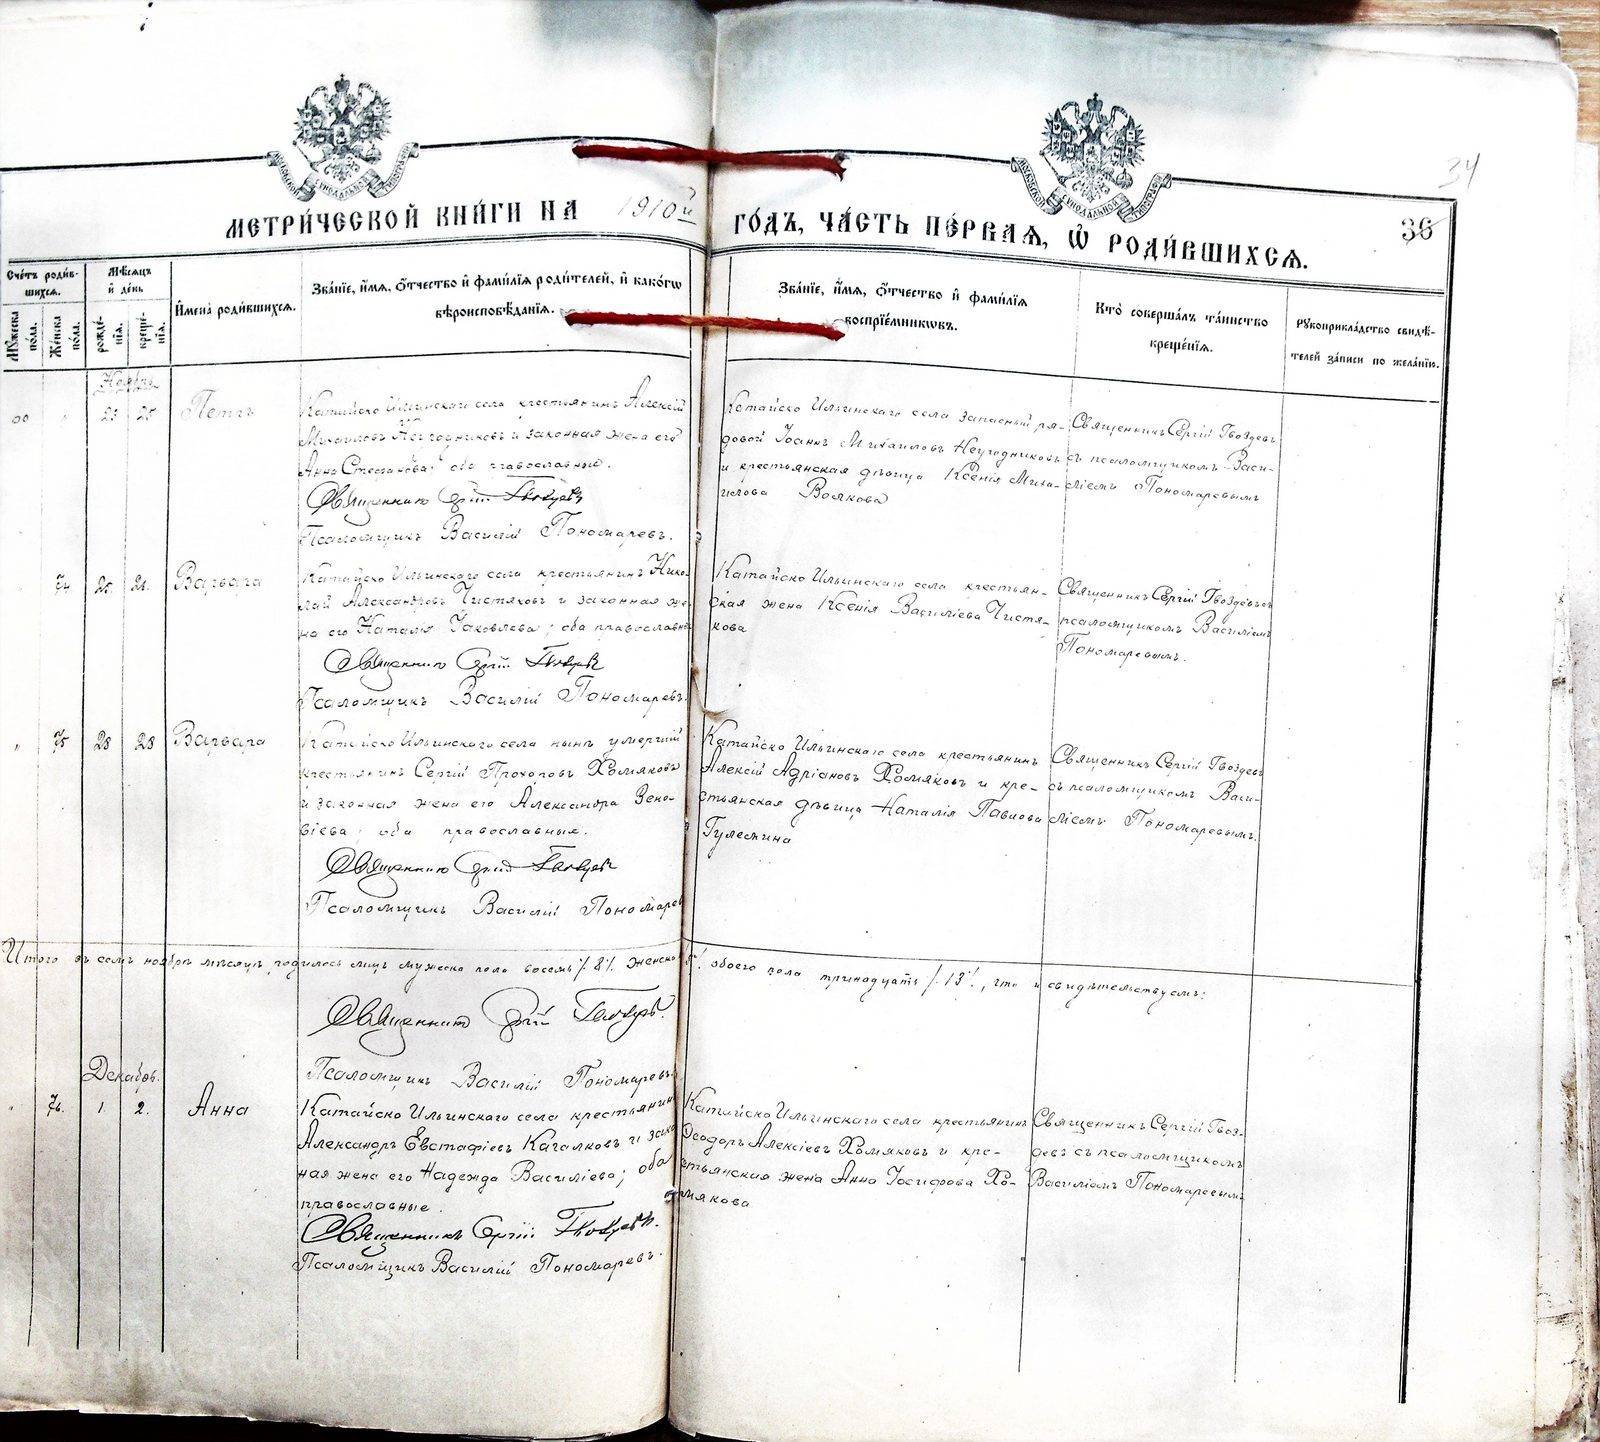 34
36
МЕТРИ́ЧЕСКОЙ КНИ́ГИ НА 1910й ГО́ДЪ, ЧА́СТЬ ПЕ́РВАЯ, Ѡ РОДИ́ВШИХСЯ.
Сче́тъ роди́вшихся.
Му́жеска по́ла.
Же́нска по́ла.
Мѣ́сяцъ и де́нь
рожде́нія.
креще́нія.
И́мена роди́вшихся.
Зва́ніе, и́мя, о́тчество и фами́лія роди́телей, и како́гѡ
вѣроисповѣ́данія.
Зва́ніе, и́мя, о́тчество и фами́лія
воспріе́мникѡвъ.
Кто̀ соверша́лъ та́инство
креще́нія.
Рукоприкла́дство свидѣ́-
телей за́писи по жела́нію.
Ноябрь
25 Петръ
Катайско Ильинскаго села крестьянинъ Алексій
Михаиловъ Неугодниковъ и законная жена его
Анна Стефанова; оба православные.
Священникъ Сергій Гвоздевъ
Псаломщикъ Василій Пономаревъ.
Катайско Ильинскаго села запасный ря-
довой Іоаннъ Михаиловъ Неугодниковъ
и крестьянская дѣвица Ксенія Миха-
илова Волкова
Священникъ Сергій Гвоздевъ
съ псаломщикомъ Васи-
ліемъ Пономаревымъ
74 25. 26. Варвара
Катайско Ильинскаго села крестьянинъ Нико-
лай Александровъ Чистяковъ и законная же-
на его Наталія Іаковлева; оба православные
Священникъ Сергій Гвоздевъ
Псаломщикъ Василій Пономаревъ.
Катайско Ильинскаго села крестьян-
ская жена Ксенія Василіева Чистя-
кова
Священникъ Сергій Гвоздевъ съ
псаломщикомъ Василіемъ
Пономаревымъ.
" 75 28 28 Варвара
Катайско Ильинскаго села нынѣ умершій
крестьянинъ Сергій Прохоровъ Хомяковъ
и законная жена его Александра Зено-
віева; оба православные.
Священникъ Сергій Гвоздевъ
Псаломщикъ Василій Пономарев
Катайско Ильинскаго села крестьянинъ
Алексій Адріановъ Хомяковъ и кре-
стьянская дѣвица Наталія Павлова
Гулемина
Священникъ Сергій Гвоздевъ
съ псаломщикомъ Васи-
ліемъ Пономаревымъ.
Итого въ семъ ноябрѣ мѣсяцѣ родилось лицъ мужеска пола восемь /. 8/. женска обоего пола тринадцать /. 13/., что и свидѣтельствуемъ:
Священникъ Сергій Гвоздевъ.
Псаломщикъ Василій Пономаревъ
Декабрь.
" 76. 1. 2. Анна
Катайско Ильинскаго села крестьянинъ
Александръ Евстафіевъ Кагалковъ и закон
ная жена его Надежда Василіева; оба
православные.
Священникъ Сергій Гвоздевъ.
Псаломщикъ Василій Пономаревъ.
Катайско Ильинскаго села крестьянинъ
Ѳеодоръ Алексіевъ Хомяковъ и кре-
стьянская жена Анна Іосифова Хо-
мякова
Священникъ Сергій Гвоз-
девъ съ псаломщикомъ
Василіемъ Пономаревымъ